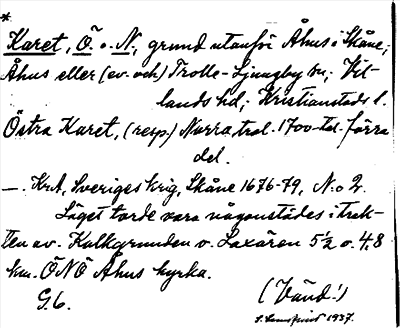 *
Karet, Ö. o. N., grund utanför Åhus i Skåne;
Åhus eller (ev. och) Trolle-Ljungby sn; Vil-
lands hd; Kristianstads l.
Östra Karet, (resp.) Norra, trol. 1700-tal. förra
del.
—. KrA, Sveriges krig, Skåne 1676-79, N:o 2.
Läget torde vara någonstädes i trak-
ten av Kalkgrunden o. Laxören 5½ o. 4,8
km. ÖNÖ Åhus kyrka.
G. 6.
(Vänd!)
1937.